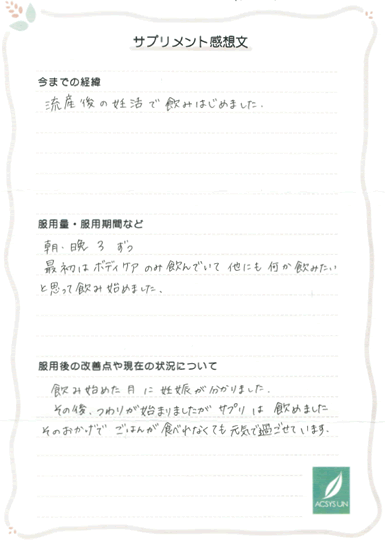 サプリメント感想文
今までの経緯
流産後の妊活で飲みはじめました.
服用量・服用期間など
朝・晩 3 ずつ
最初は ボディケア のみ 飲んでいて 他にも 何か飲みたい
と思って飲み始めました.
服用後の改善点や現在の状況について
飲み始めた 月 に 妊娠が分かりました.
その後、つわりが始まりましたが サプリ は 飲めました
そのおかげで ごはんが食べれなくても 元気で過ごせています.
ACSYS UN